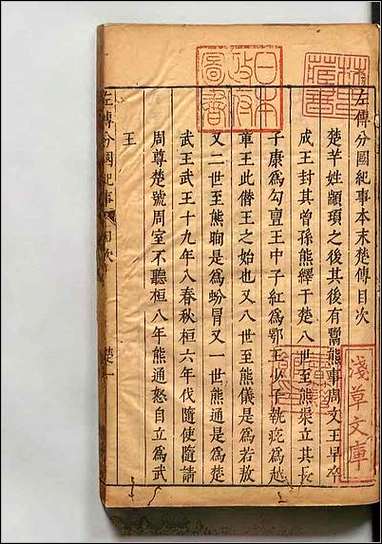 左傳分國紀事本末楚傳目次
楚羋姓顓頊之後其後有鬻熊事周文王早卒
成王封其曾孫熊繹于楚八世至熊渠立其長
子康爲勾亶王中子紅爲鄂王少子執疵爲越
章王此僭王之始也又八世至熊儀是爲若敖
又二世至熊眴是爲蚡冒又一世熊通是爲楚
武王武王十九年入春秋桓六年伐隨使隨請
周尊楚號周室不聽桓八年熊通怒自立爲武
王
左傳分國紀事 目次 楚一
林氏藏書
日本政府圖書
淺草文庫